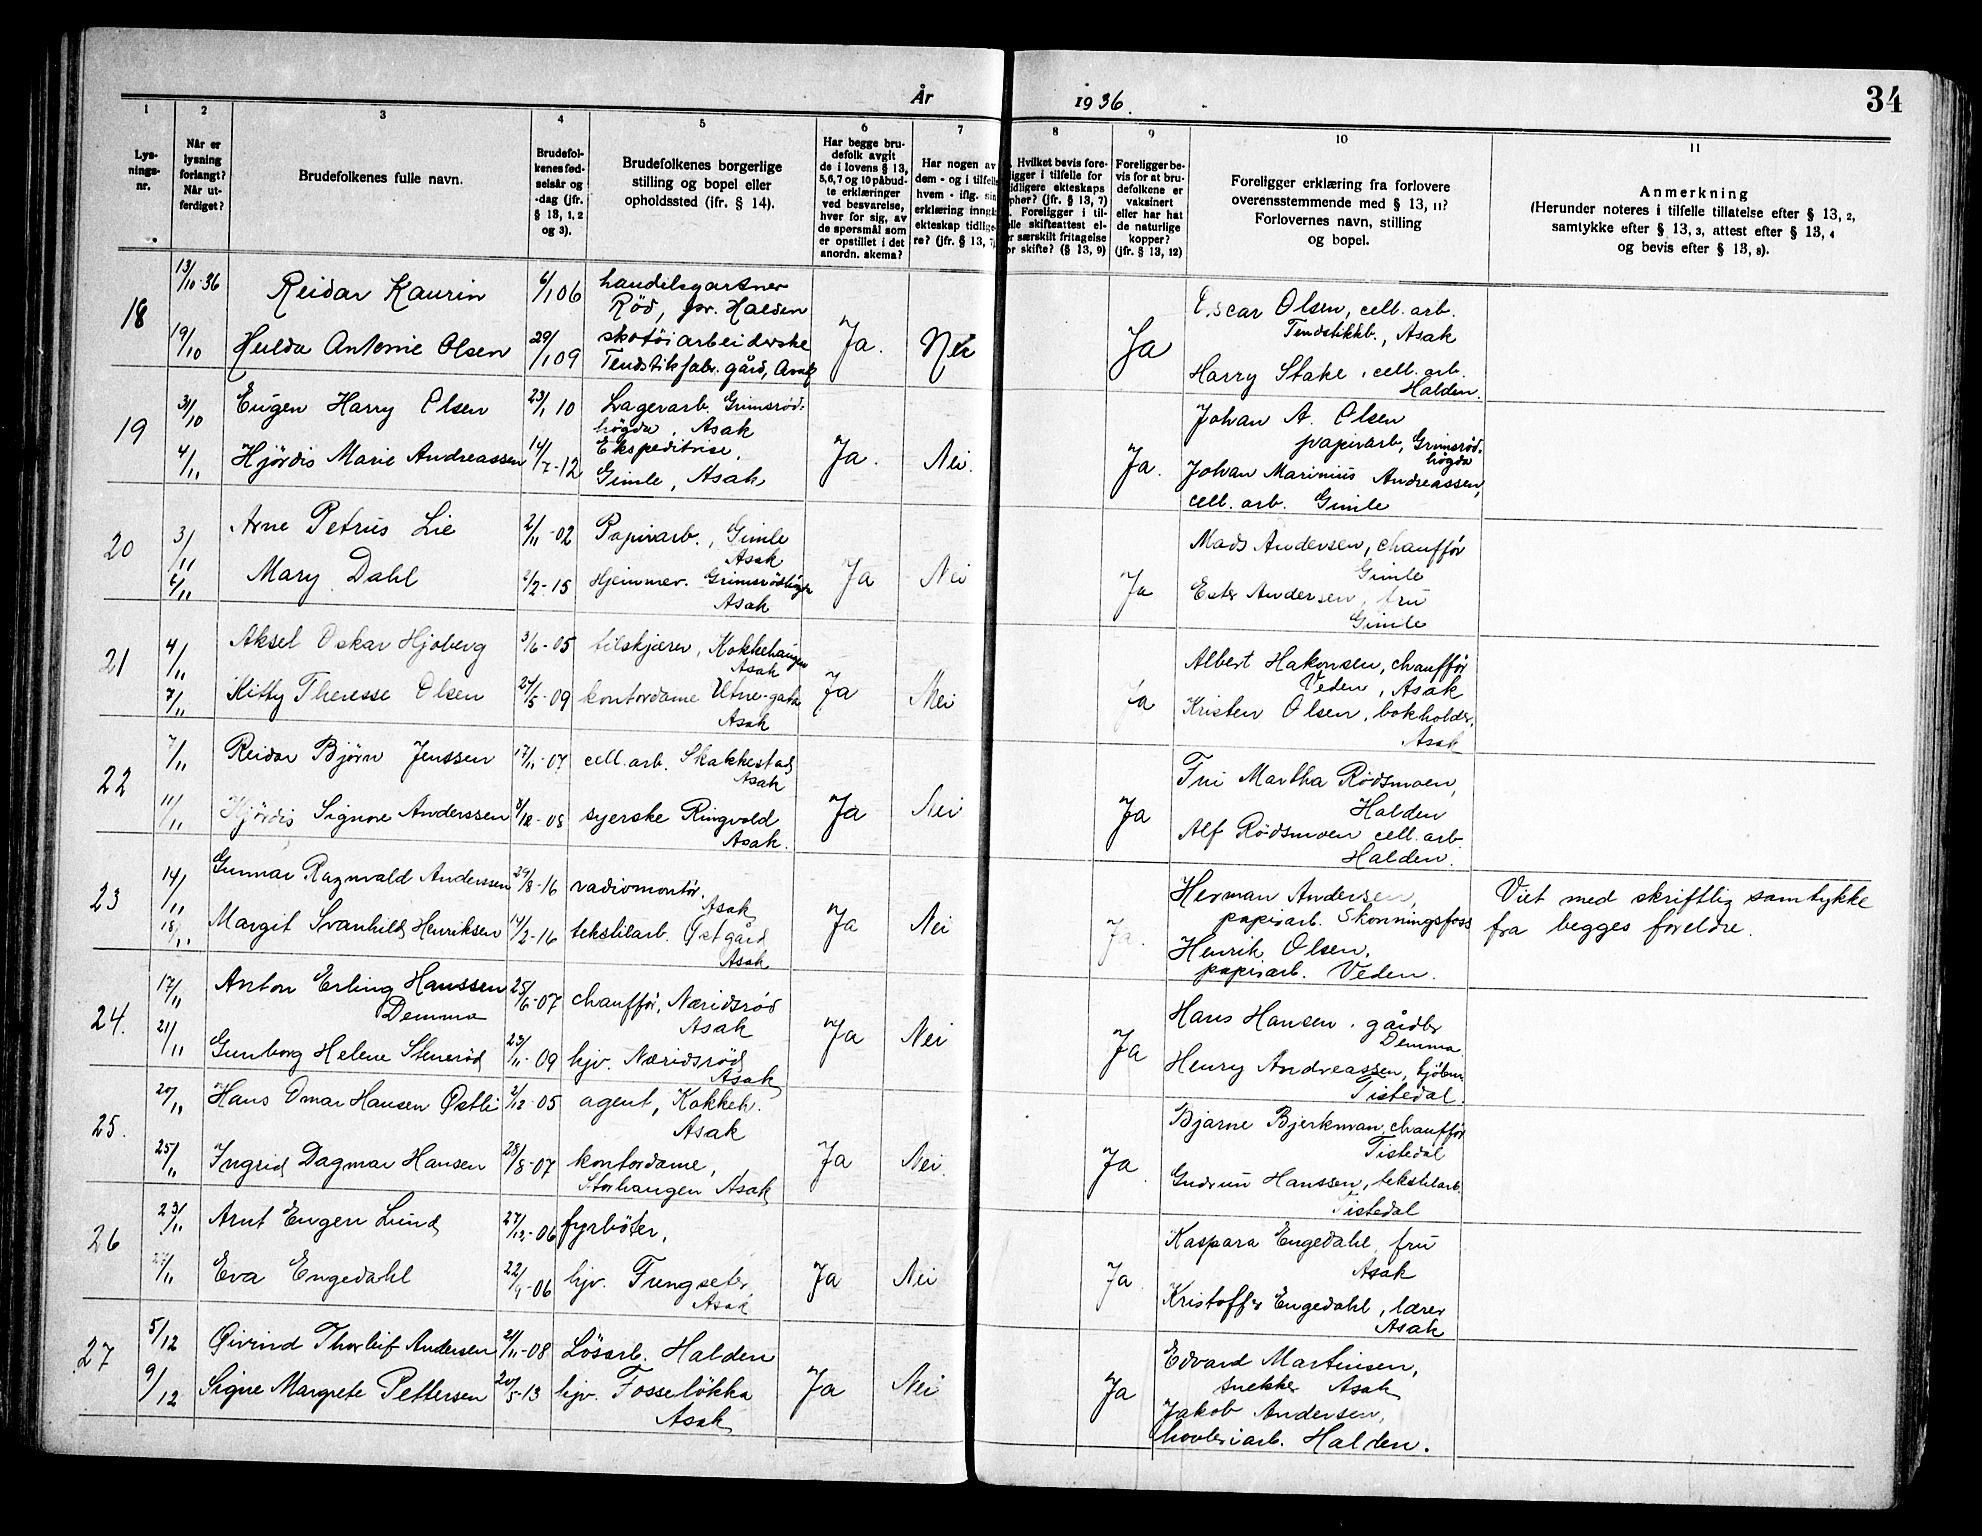 År 1936.
34
1 2 3 4 5 6 7 8 9 10 11
Lys-
nings-
nr.
Når er
lysning
forlangt?
Når ut-
ferdiget?
Brudefolkenes fulle navn.
Brudefol-
kenes fød-
selsår og
-dag (jfr.
§ 13, 1, 2
og 3).
Brudefolkenes borgerlige
stilling og bopel eller
opholdssted (jfr. § 14).
Har begge bru-
defolk avgit
de i lovens § 13,
5, 6, 7 og 10 påbud-
te erklæringer
ved besvarelse,
hver for sig, av
de spørsmål som
er opstillet i det
anordn. skema?
Har nogen av
dem - og i tilfelle
hvem - iflg. sin
erklæring inngått
ekteskap tidlige-
re? (jfr. § 13, 7).
Hvilket bevis fore-
ligger i tilfelle for
tidligere ekteskaps
ophør? (jfr. § 13, 7)
Foreligger i til-
felle skifteattest el-
ler særskilt fritagelse
for skifte? (§ 13, 9)
Foreligger be-
vis for at bru-
defolkene er
vaksinert
eller har hat
de naturlige
kopper?
(jfr. § 13, 12)
Foreligger erklæring fra forlovere
overensstemmende med § 13, 11?
Forlovernes navn, stilling
og bopel.
Anmerkning
(Herunder noteres i tilfelle tillatelse efter § 13, 2,
samtykke efter § 13, 3, attest efter § 13, 4
og bevis efter § 13, 8).
18
13/10-36 Reidar Kaurin 6/1 06 handelsgartner
Röd, pr. Halden
19/10 Hulda Antonie Olsen 29/1 09 skotöiarbeiderske
Tendstikfabr. gård, Asak
Ja. Nei Ja
Oscar Olsen, cell. arb.
Tendstikkb., Asak
Harry Stake, cell. arb.
Halden.
19
31/10 Eugen Harry Olsen 23/1 10 Lagerarb. Grimsröd-
högda, Asak
4/11 Hjördis Marie Andreassen 14/7-12 Ekspeditrise,
Gimle, Asak
Ja. Nei. Ja.
Johan A. Olsen
papirarb, Grimsröd-
högda
Johan Marinius Andreassen,
cell. arb. Gimle
20
3/11 Arne Petrus Lie 2/11-02 Papirarb., Gimle
Asak
6/11 Mary Dahl 2/2-15 Hjemmev. Grimsrödhögda
Asak
Ja Nei Ja
Mads Andersen, chaufför
Gimle
Ester Andersen, fru
Gimle
21
4/11 Aksel Oskar Hjoberg 3/6-05 tilskjærer, Kokkehaugen
Asak
7/11 Kitty Theresse Olsen 27/5-09 kontordame Utne-gata
Asak
Ja Nei Ja
Albert Hakonsen, chaufför
Veden, Asak
Kristen Olsen, bokholder,
Asak
22
7/11 Reidar Bjørn Jenssen 17/11-07 cell. arb. Skakkestad
Asak
11/11 Hjördis Signore Anderssen 3/12-08 syerske Ringvold
Asak.
Ja Nei Ja
Fru Martha Rödsmoen,
Halden
Alf Rödsmoen cell. arb.
Halden.
23
14/11 Gunnar Ragnvald Anderssen 29/8-16 radiomontör.
Asak
18/11 Margit Svanhild Henriksen 14/2-16 tekstilarb. Østgård
Asak
Ja Nei Ja.
Herman Andersen,
papirarb. Skonningsfoss
Henrik Olsen,
papirarb. Veden.
Viet med skriftlig samtykke
fra begges foreldre.
24.
17/11 Anton Erling Hanssen 25/6-07 chaufför, Næridsröd
Demma Asak
21/11 Gunborg Helene Stenröd 23/11-09 hjv. Næridsröd
Asak
Ja Nei Ja
Hans Hansen, gårdbr
Demma
Henry Andreassen, kjöbm
Tistedal.
25.
20/11 Hans Omar Hansen Østli 2/12-05 agent, Kokkeh.
Asak
25/11 Ingrid Dagmar Hansen 28/8-07 kontordame,
Storhaugen Asak
Ja Nei. Ja.
Bjarne Bjerkman, chaufför
Tistedal
Gudrun Hanssen, tekstilarb.
Tistedal
26
23/11 Arnt Eugen Lund 27/12-06 fyrböter,
27/11 Eva Engedahl 22/9-06 hjv. Trengseter
Asak
Ja Nei Ja.
Kaspara Engedahl, fru
Asak
Kristoffer Engedahl, lærer
Asak
27
5/12 Øivind Thorleif Andersen 21/11-08 Lösarb. Halden
9/12 Signe Margrete Pettersen 20/5-13 hjv. Fosselökka
Asak
Ja Nei Ja
Edvard Martinsen,
snekker Asak
Jakob Andersen,
høvleriarb. Halden.